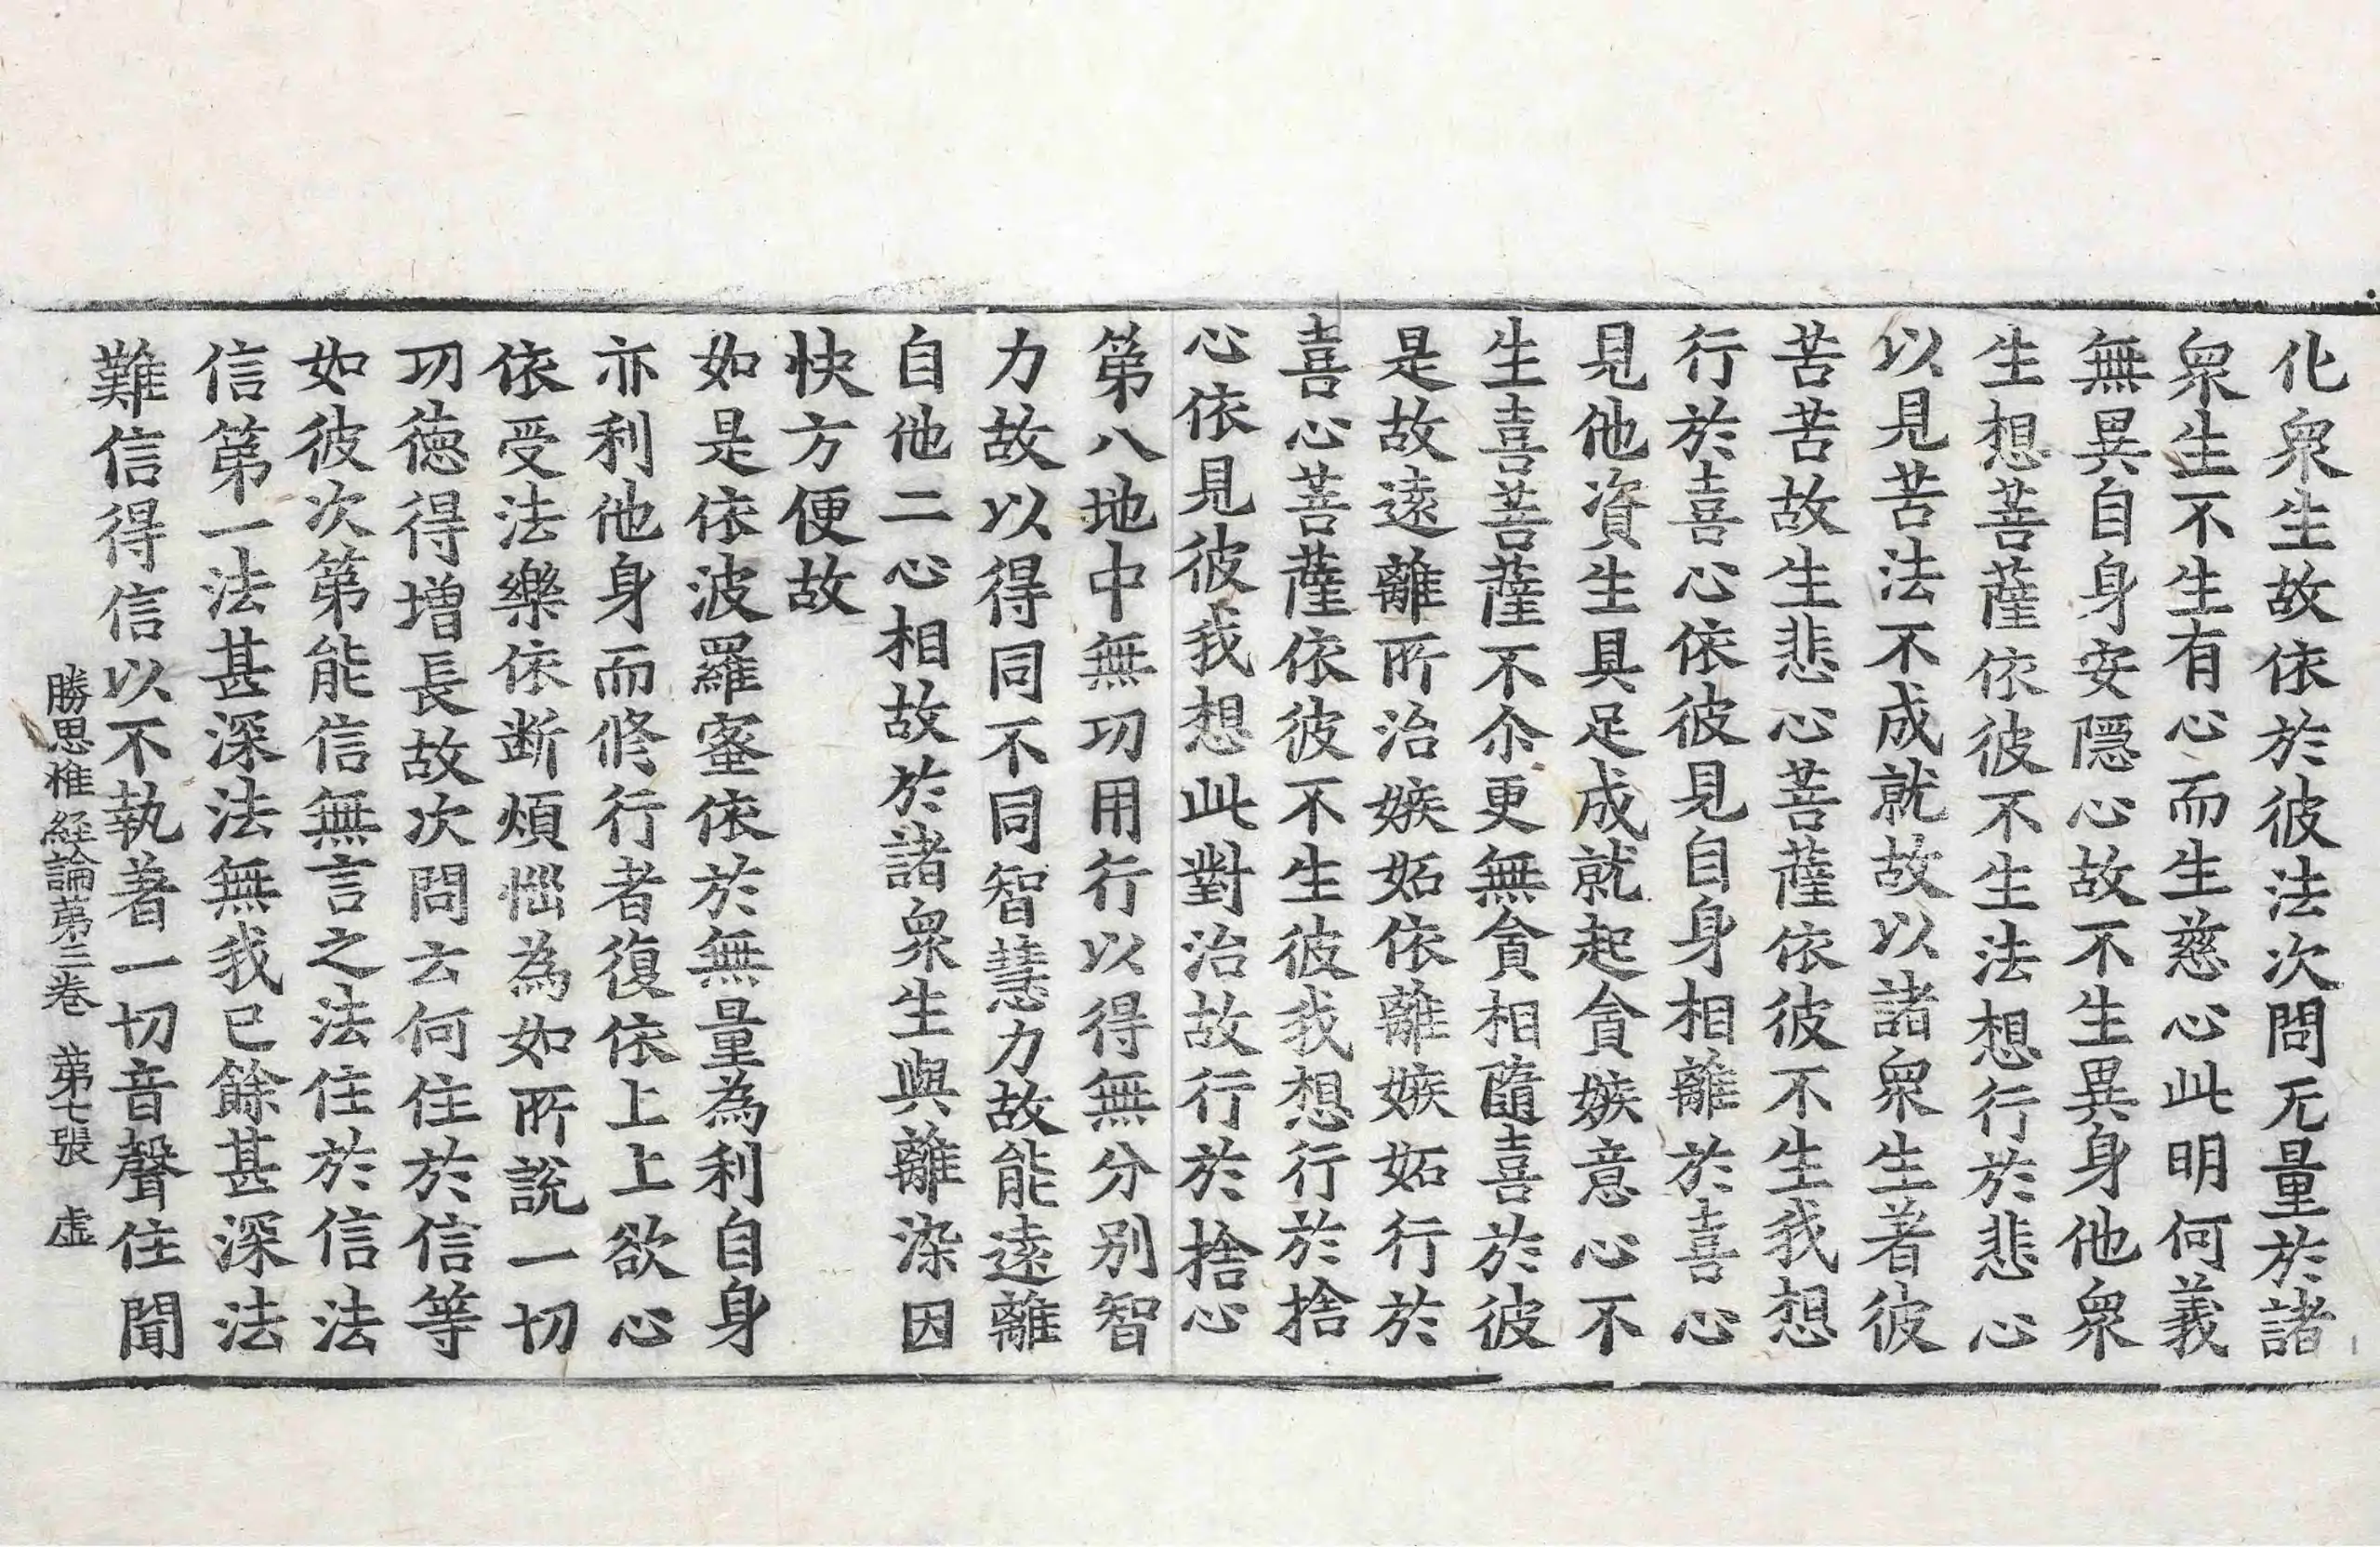 化衆生故依於彼法次問无量於諸
衆生不生有心而生慈心此明何義
無異自身安隱心故不生異身他衆
生想菩薩依彼不生法想行於悲心
以見苦法不成就故以諸衆生著彼
苦苦故生悲心菩薩依彼不生我想
行於喜心依彼見自身相離於喜心
見他資生具足成就起貪嫉意心不
生喜菩薩不尒更無貪相隨喜於彼
是故遠離所治嫉妬依離嫉妬行於
喜心菩薩依彼不生彼我想行於捨
心依見彼我想此對治故行於捨心
第八地中無功用行以得無分別智
力故以得同不同智慧力故能遠離
自他二心相故於諸衆生與離染因
快方便故
如是依波羅蜜依於無量為利自身
亦利他身而修行者復依上上欲心
依受法樂依断煩惱為如所說一切
功德得增長故次問云何住於信等
如彼次第能信無言之法住於信法
信第一法甚深法無我已餘甚深法
難信得信以不執著一切音聲住聞
勝思惟経論苐三卷　苐七張　虛